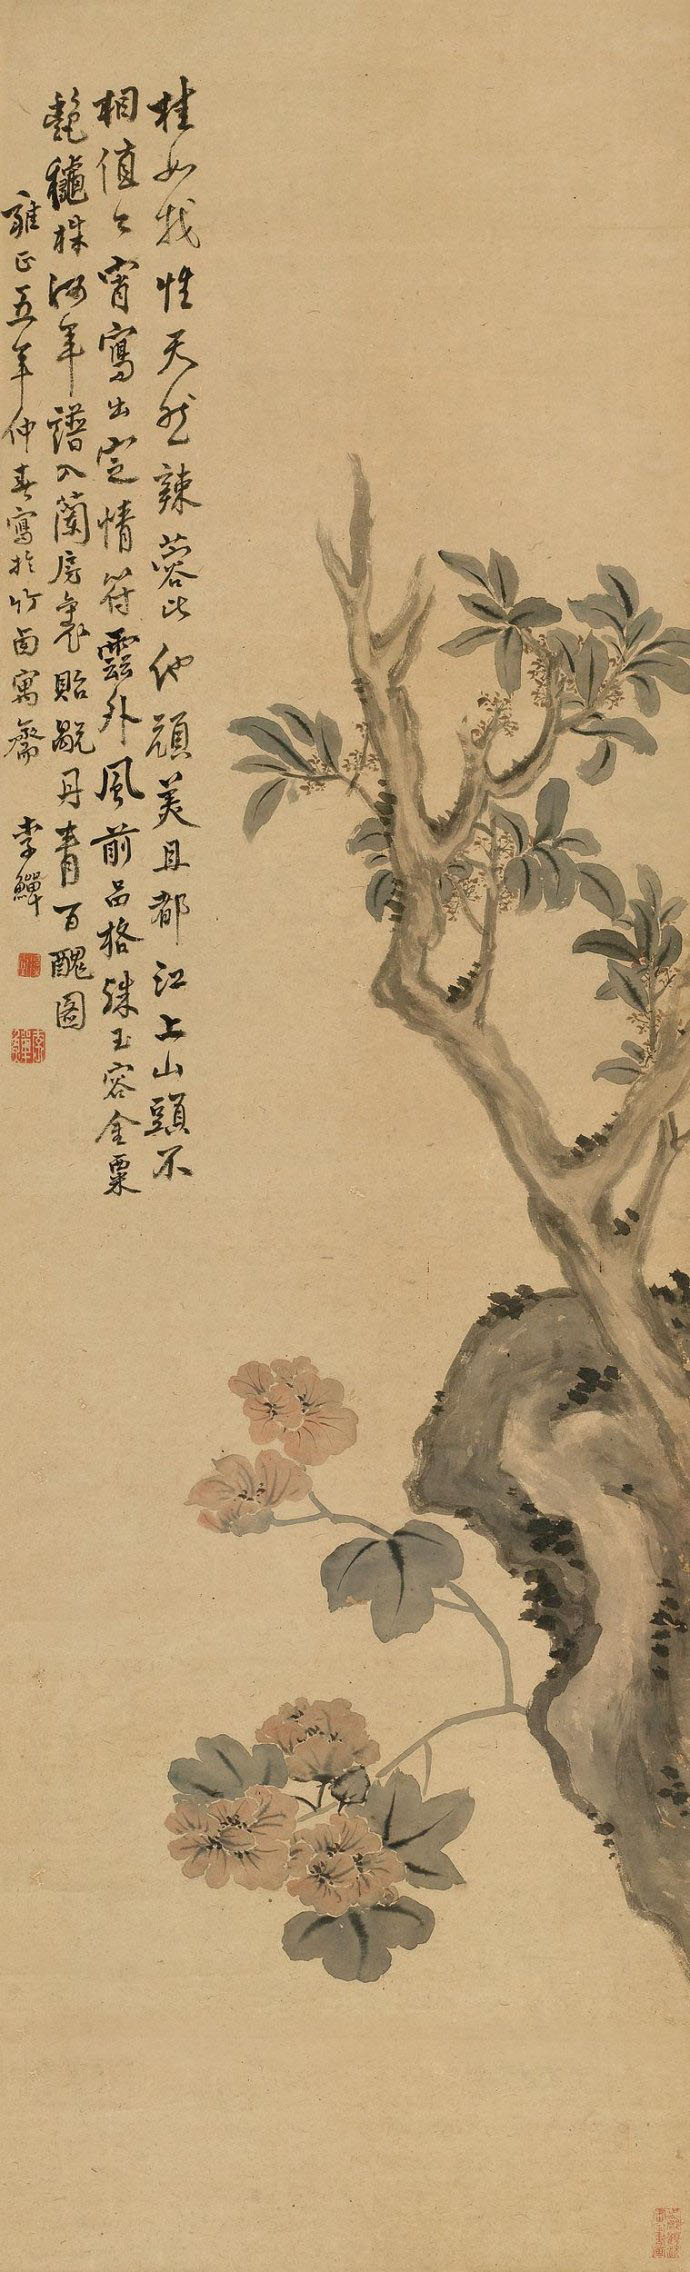 桂如我性天然辣蓉比他顔美且都江上山頭不
相值今宵寫出定情符雲外風前品格殊玉容金粟
艷穠株何年譜入蘭房裏貽 丹青百醜圖
雍正五年仲春寫於竹西寓齋 李鱓